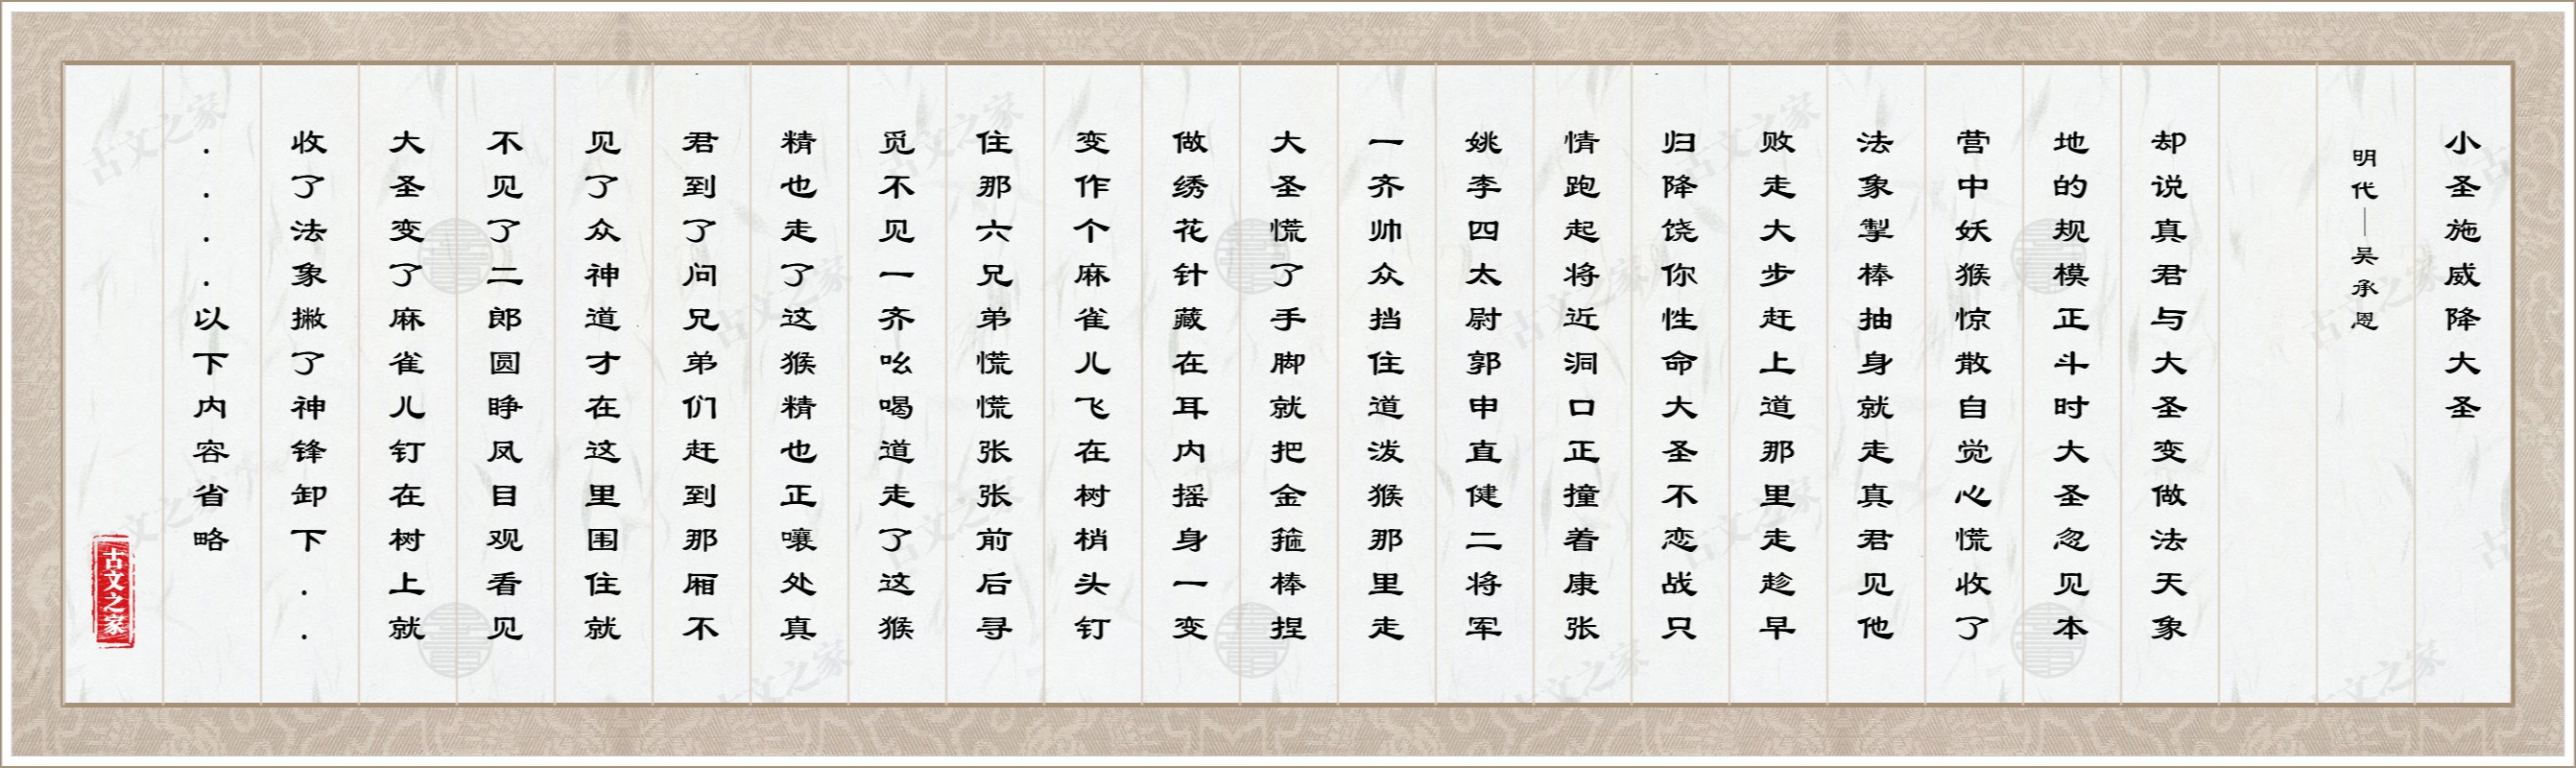 小圣施威降大圣
明代｜吴承恩
却说真君与大圣变做法天象
地的规模正斗时大圣忽见本
营中妖猴惊散自觉心慌收了
法象掣棒抽身就走真君见他
败走大步赶上道那里走趁早
归降饶你性命大圣不恋战只
情跑起将近洞口正撞着康张
姚李四太尉郭申直健二将军
一齐帅众挡住道泼猴那里走
大圣慌了手脚就把金箍棒捏
做绣花针藏在耳内摇身一变
变作个麻雀儿飞在树梢头钉
住那六兄弟慌慌张张前后寻
觅不见一齐吆喝道走了这猴
精也走了这猴精也正嚷处真
君到了问兄弟们赶到那厢不
见了众神道才在这里围住就
不见了二郎圆睁凤目观看见
大圣变了麻雀儿钉在树上就
收了法象撇了神锋卸下..
....以下内容省略
古文之家